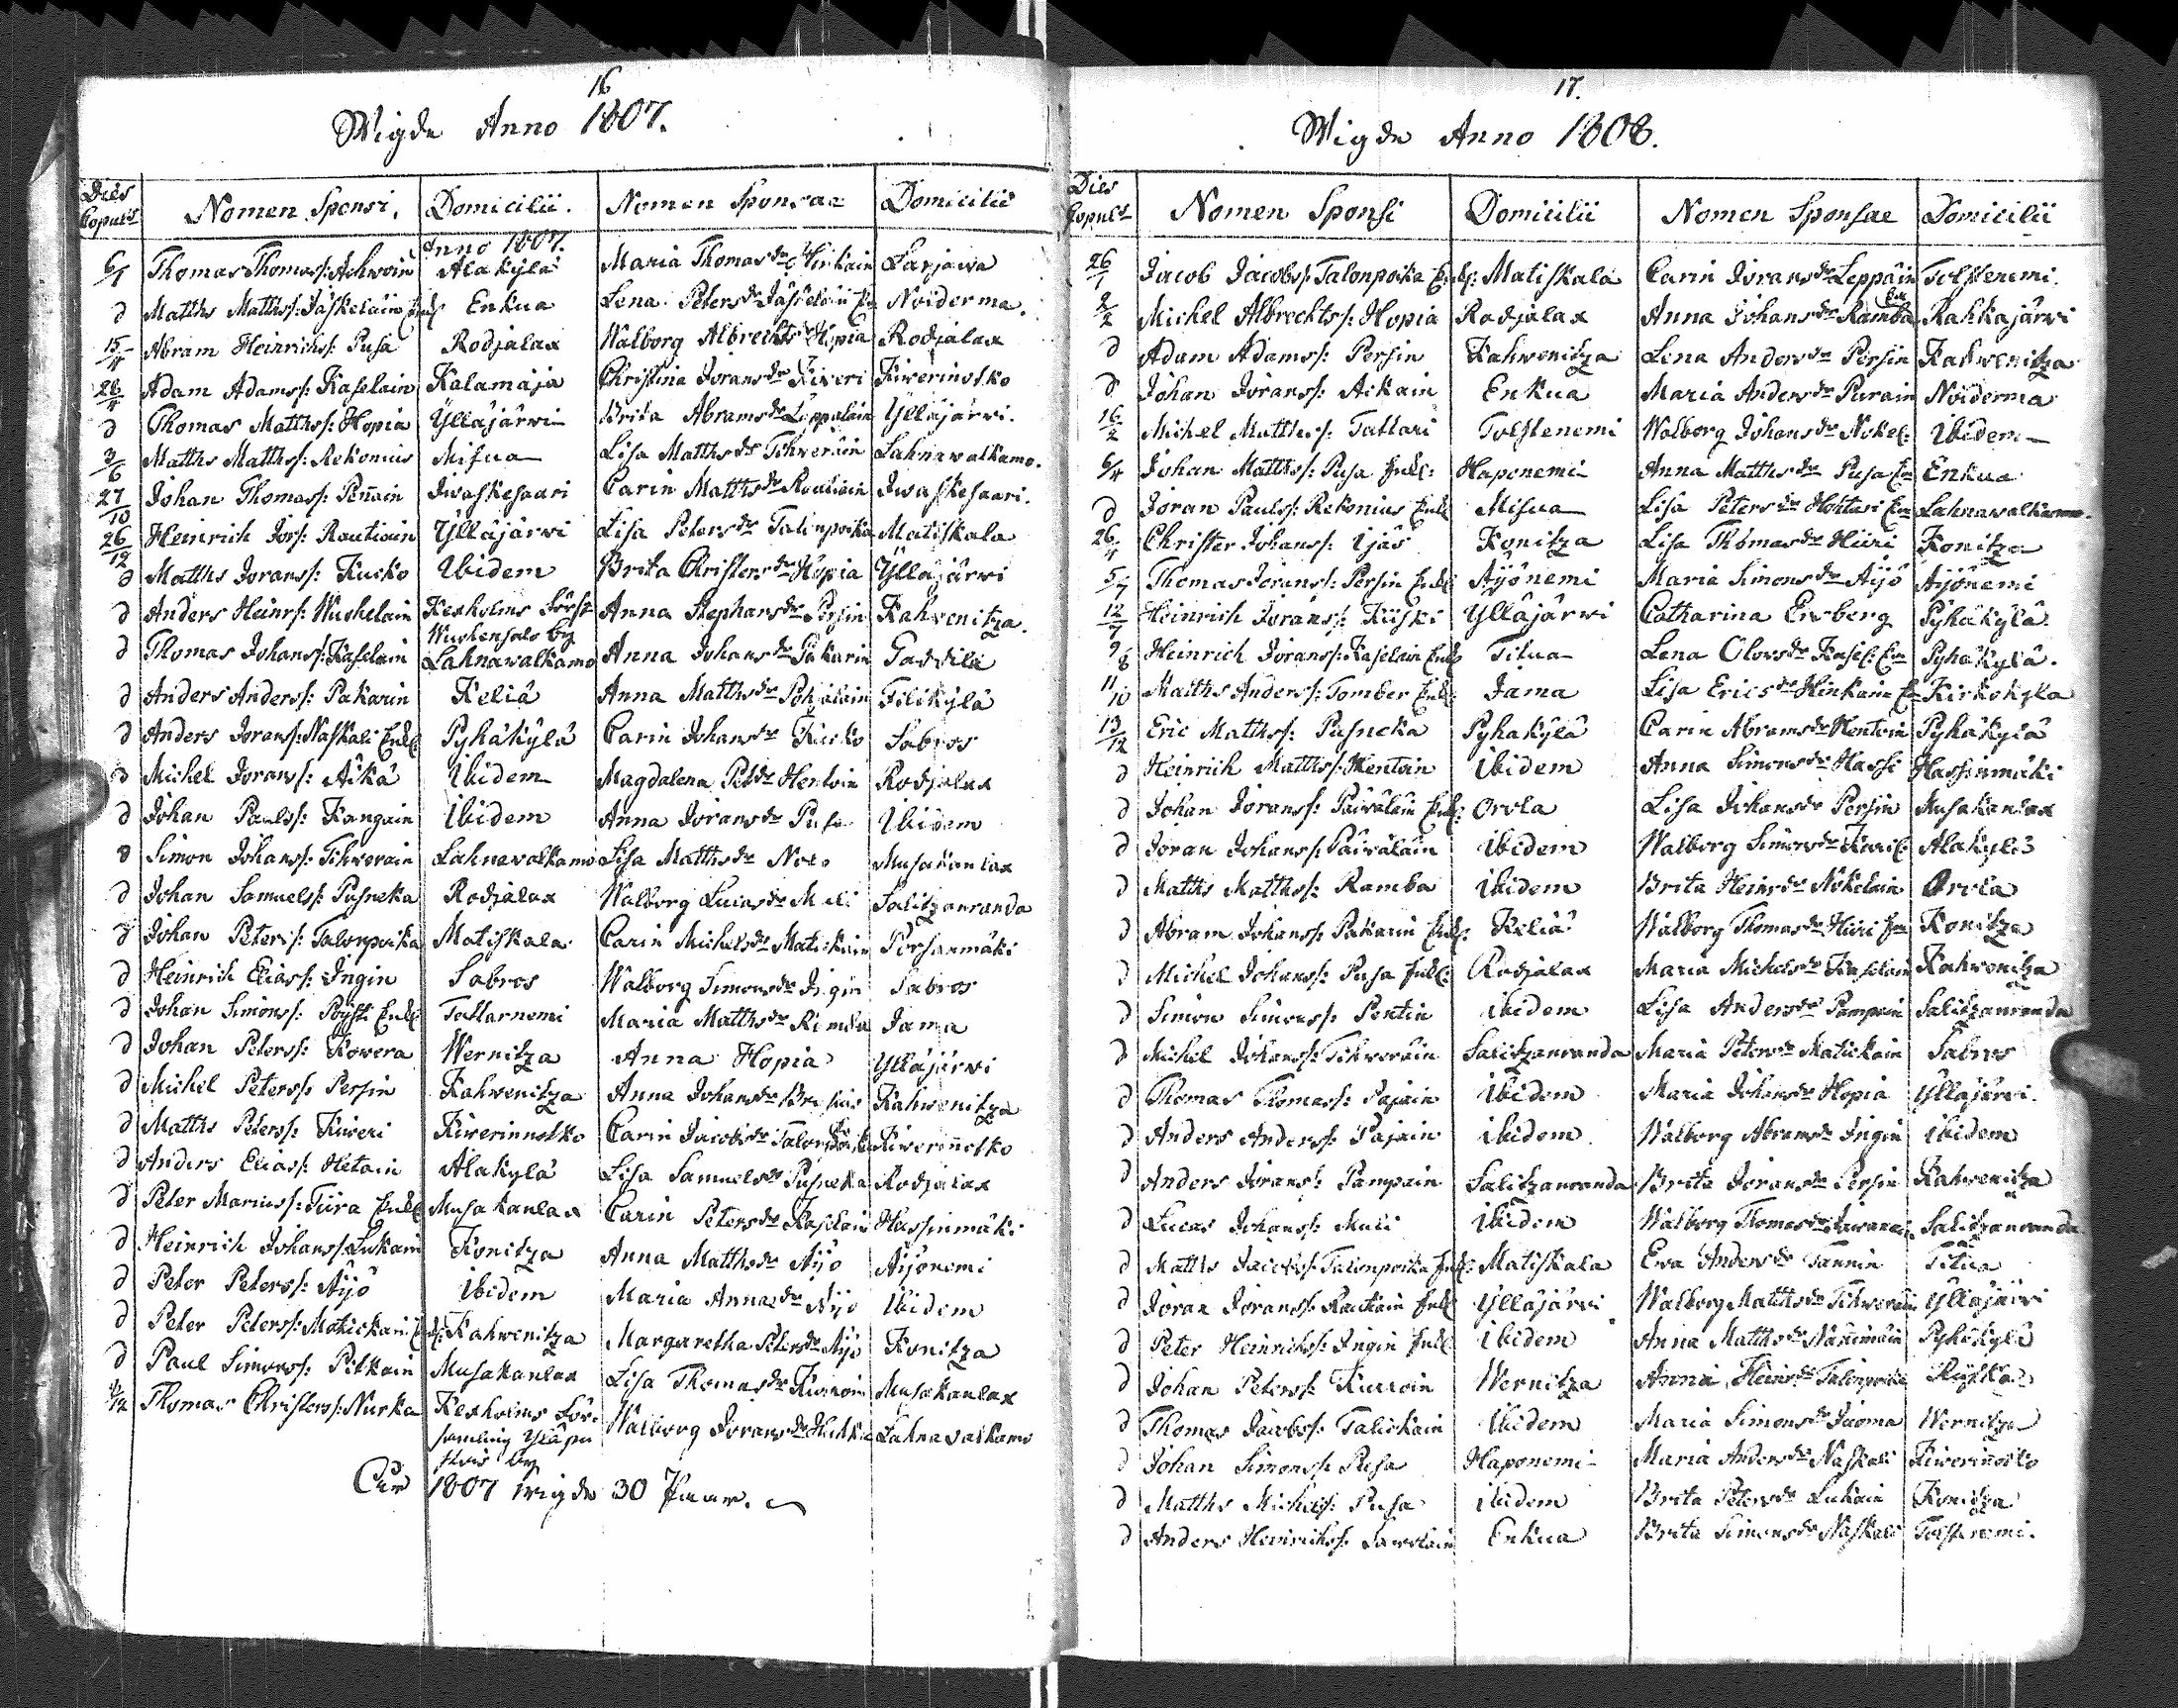 16
Wigde Anno 1807.
Dies Copult Nomen Sponsi. Domicilii. Nomen Sponsae Domicilii
Anno 1807.
6/1 Thomas Thomass: Achwoin Alakylä Maria Thomasdr Hinkain Larjawa
d Matths Matthss: Jäskeläin Enkl Enkua Lena Petersdr Jäskeläin Noiderma.
15/4 Abram Heinrichs: Pusa Rodjalax Walborg Albrechtsdr Hopia Rodjalax
26/4 Adam Adamss: Kaselain Kalamaja Christina Joransdr Kiweri Kiwerinotko
d Thomas Matthss: Hopia Ylläjärwi Brita Abramsdr Leppäläin Ylläjärwi.
3/6 Matths Matthss: Rekonius Misua Lisa Matthsdr Tihweräin Lahnawalkamo.
27/10 Johan Thomass: Peñain Iwaskesaari Carin Matthsdr Roukiain Iwaskesaari.
26/12 Heinrich Jors: Rautiain Ylläjärwi Lisa Petersdr Talonpoika Matiskala
d Matths Joranss: Kucko Ibidem Brita Christersdr Hopia Ylläjärwi
d Anders Heinrs: Wuskelain Kexholms Förs: Anna Stephansdr Persin Kahwenitza.
Wuskensalo by
d Thomas Johanss: Kaselain Lahnawalkamo Anna Johansdr Pakarin Gaddila
d Anders Anderss: Pakarin Keliä Anna Matthsdr Pohjalain Tilikylä
d Anders Joranss: Naskali Enkl: Pyhäkylä Carin Johansdr Kucko Sabros
d Michel Joranss: Aikä Ibidem Magdalena Petdr Hentoin Rodjalax
d Johan Paulss: Kangain Ibidem Anna Joransdr Pusa Ibidem
d Simon Johanss: Tihwerain Lahnawalkamo Lisa Matthsdr Noto Musakanlax
d Johan Samuelss: Pusneka Rodjalax Walborg Lucasdr Muli Salitzanranda
d Johan Peterss: Talonpoika Matiskala Carin Michelsdr Matickain Porsanmäki
d Heinrich Eliass: Ingin Sabros Walborg Simonsdr Ingin Sabros
d Johan Simonss: Pöysti Enkl: Tattarnemi Maria Matthsdr Rimba Jama
d Johan Peterss: Kowera Wernitza Anna Hopia Ylläjärwi
d Michel Peterss: Persin Kahwenitza Anna Johansdr Kahwenitza
d Matths Peterss: Kiweri Kiwerinnotko Carin Jacobsdr Talonpoika Kiwerinnotko
d Anders Eliass: Hetain Alakylä Lisa Samuelsdr Pusneka Rodjalax
d Peter Mariuss: Tiira Enkl Musakanlax Carin Petersdr Kaselain Hassinmäki
d Heinrich Johanss: Lukain Konitza Anna Matthsdr Äijö Äijönemi
d Peter Peterss: Äijö Ibidem Maria Annasdr Äijö Ibidem
d Peter Peterss: Matickain Enkl: Kahwenitza Margaretha Petersdr Äijö Konitza
d Paul Simonss: Pitkain Musakanlax Lisa Thomasdr Kurwoin Musakanlax
Thomas Christerss: Nurka Kexholms För- Walborg Joransdr Huhka Lahnawalkamo
samling Yläpu
by
1807 wigde 30 Paar.
17.
Wigde Anno 1808.
Dies Copult Nomen Sponsi Domicilii Nomen Sponsae Domicilii
26/1 Jacob Jacobss: Talonpoika Enkl: Matiskala Carin Joransdr Leppäin Tolstenemi.
2/2 Michel Albrechtss: Hopia Rodjalax Anna Johansdr Ramba Rahkajärwi
d Adam Adamss: Persin Kahwenitza Lena Andersdr Persin Kahwenitza
d Johan Joranss: Aikain Enkua Maria Andersdr Purain Noiderma
16/2 Michel Matthss: Tattari Tolstenemi Walborg Johansdr Nokel: Ibidem
6/4 Johan Matthss: Pusa Enkl: Haponemi Anna Matthsdr Pusa Enkua
d Joran Paulss: Rekonius Enkl Misua Lisa Petersdr Hohtari Lahnawalkamo.
26/4 Christer Johanss: Ijäs Konitza Lisa Thomasdr Hiiri Konitza
5/7 Thomas Joranss: Persin Enkl Äijönemi Maria Simonsdr Äijö Äijönemi
12/7 Heinrich Joranss: Kiiski Ylläjärwi Catharina Enberg Pyhäkylä
9/8 Heinrich Joranss: Kaselain Enkl Titua Lena Olovsdr Kasel: Pyhäkylä.
11/10 Matths Anderss: Tomber Enkl: Jama Lisa Ericsdr Hinkain Kirkokyla
13/12 Eric Matthss: Pusneka Pyhäkylä Carin Abramsdr Hentoin Pyhäkylä
d Heinrich Matthss: Hentoin Ibidem Anna Simonsdr Hassi Hassinmäki
d Johan Joranss: Päiväläin Enkl: Orola Lisa Johansdr Persin Musakanlax
d Joran Johanss: Päiväläin Ibidem Walborg Simonsdr Alakylä
d Matths Matthss: Ramba Ibidem Brita Heinrsdr Nokelain Orola
d Abram Johanss: Pakarin Enkl: Keliä Walborg Thomasdr Hiiri Konitza
d Michel Johanss: Pusa Enkl: Rodjalax Maria Michelsdr Kaselain Kahwenitza
d Simon Simonss: Pentin Ibidem Lisa Andersdr Pampain Salitzanranda
d Michel Johanss: Tihweräin Salitzanranda Maria Petersdr Matickain Sabros
d Thomas Thomass: Pajain Ibidem Maria Johansdr Hopia Ylläjärwi.
d Anders Anderss: Pajain Ibidem Walborg Abramsdr Ingin Ibidem
d Anders Joranss: Pampain Salitzanranda Brita Joransdr Persin Kahwenitza
d Lucas Johanss: Muli Ibidem Walborg Thomasdr Salitzanranda
d Matths Jacobss: Talonpoika Enkl: Matiskala Ewa Andersdr Tannin Titua
d Joran Joranss: Rautiain Enkl Ylläjärwi Walborg Matthsdr Tihweräin Ylläjärwi
d Peter Heinrichss: Ingin Enkl Ibidem Anna Matthsdr Pyhäkylä
d Johan Peterss: Kurwoin Wernitza Anna Heinrsdr Talonpoika
d Thomas Jacobss: Talickain Ibidem Maria Simonsdr Juoma Wernitza
d Johan Simonss: Pusa Haponemi Maria Andersdr Naskali Kiwerinnotko
d Matths Michelss: Pusa Ibidem Brita Petersdr Lukain Konitza
d Anders Heinrichss: Sawolain Enkua Brita Simonsdr Naskali Tolstenemi.